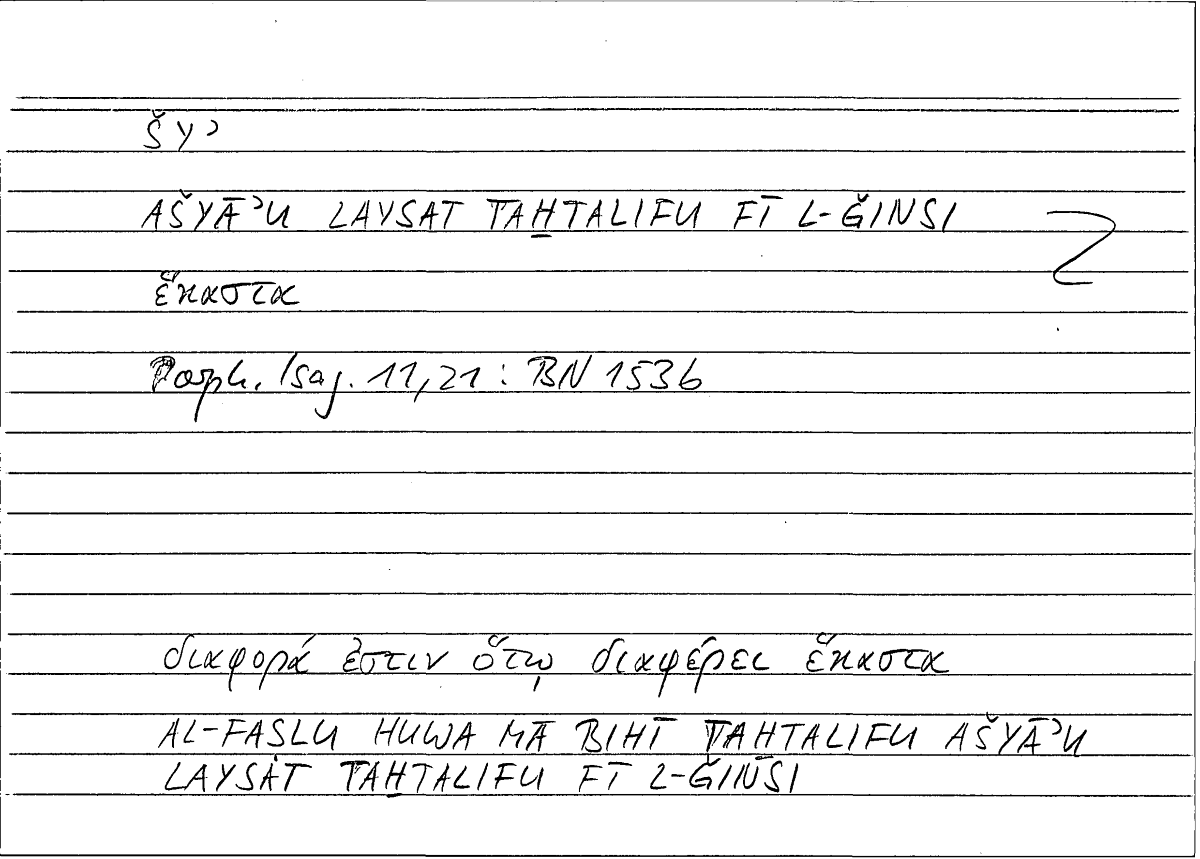 ŠYʾ
AŠYĀʾU LAYSAT TAḪTALIFU FĪ L-ǦINSI
ἕκαστα
Porph. Isag. 11,21 : BN 1536
διαφορά ἐστιν ὅτῳ διαφέρει ἕκαστα
AL-FAṢLU HUWA MĀ BIHĪ TAḪTALIFU AŠYĀʾU
LAYSAT TAḪTALIFU FĪ L-ǦINSI